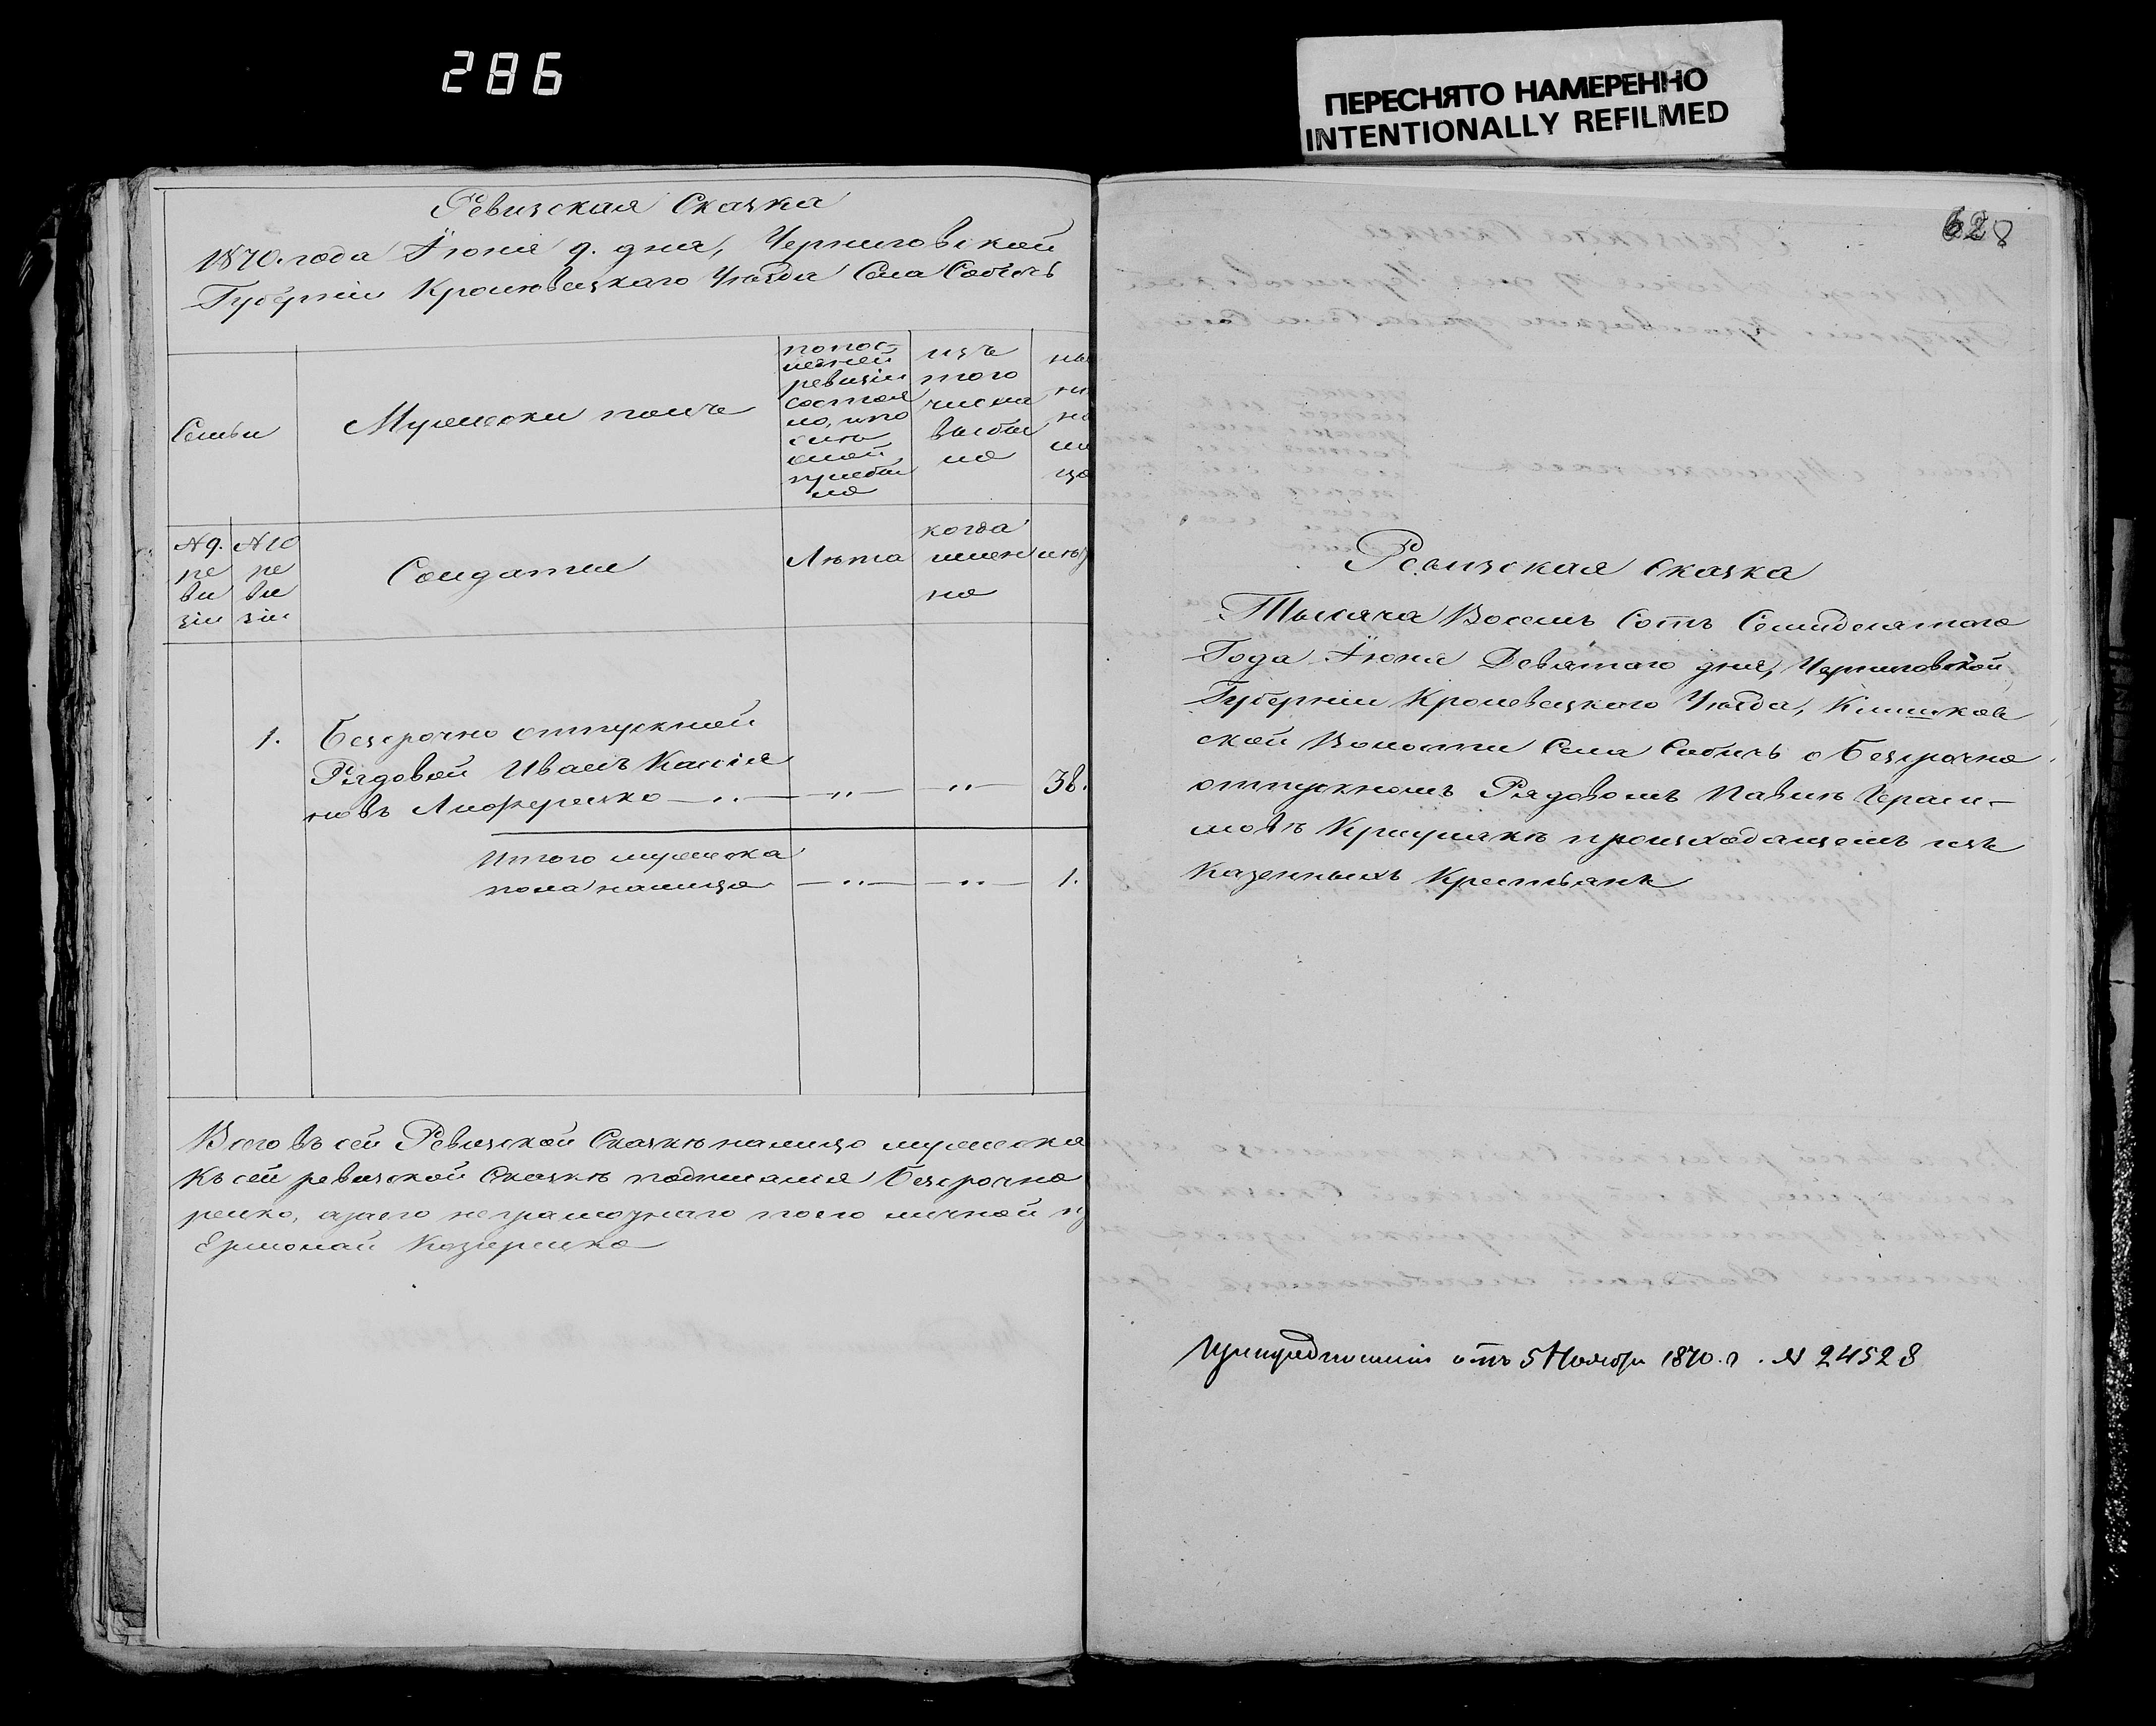 286
ПЕРЕСНЯТО НАМЕРЕННО
INTENTIONALLY REFILMED
Ревизская Сказка
1870. года Іюня 9. дня, Черниговской
Губерніи Кролевецкаго Уѣзда Села Собичь
Семьи
Мужеска полъ
по пос-
лѣдней
ревизіи
состоя
ло, и по
слѣ
оной
прибы
ло
изъ
того
числа
выбы
ло
ны
нѣ
на
ли
цо
№9.
ре
ви
зіи
№10
ре
ви
зіи
Солдаты
Лѣта
когда
имен
но
лѣ
1. Безсрочно отпускной
Рядовой Иванъ Кассія
новъ Алференко — „ — — „ — — „ — 38.
Итого мужеска
пола налицо — „ — — „ — 1.
Всего въ сей Ревизской Сказкѣ налицо мужеска
Къ сей ревизской Сказкѣ подписался Безсрочно
ренко, а за его неграмотнаго по его личной п
Ермолай Козыренко
628
Ревизская Сказка
Тысяча Восемь Сотъ Семидесятого
Года Іюня Девятого дня, Черниговской
Губерніи Кролевецкого Уѣзда, Клишков
ской Волости Села Собичь о Безсрочно
отпускномъ Рядовомъ Павлѣ Гераси-
мовѣ происходящемъ изъ
Казенныхъ Крестьянъ
При предписаніи отъ 5 Ноября 1870. г. № 24528